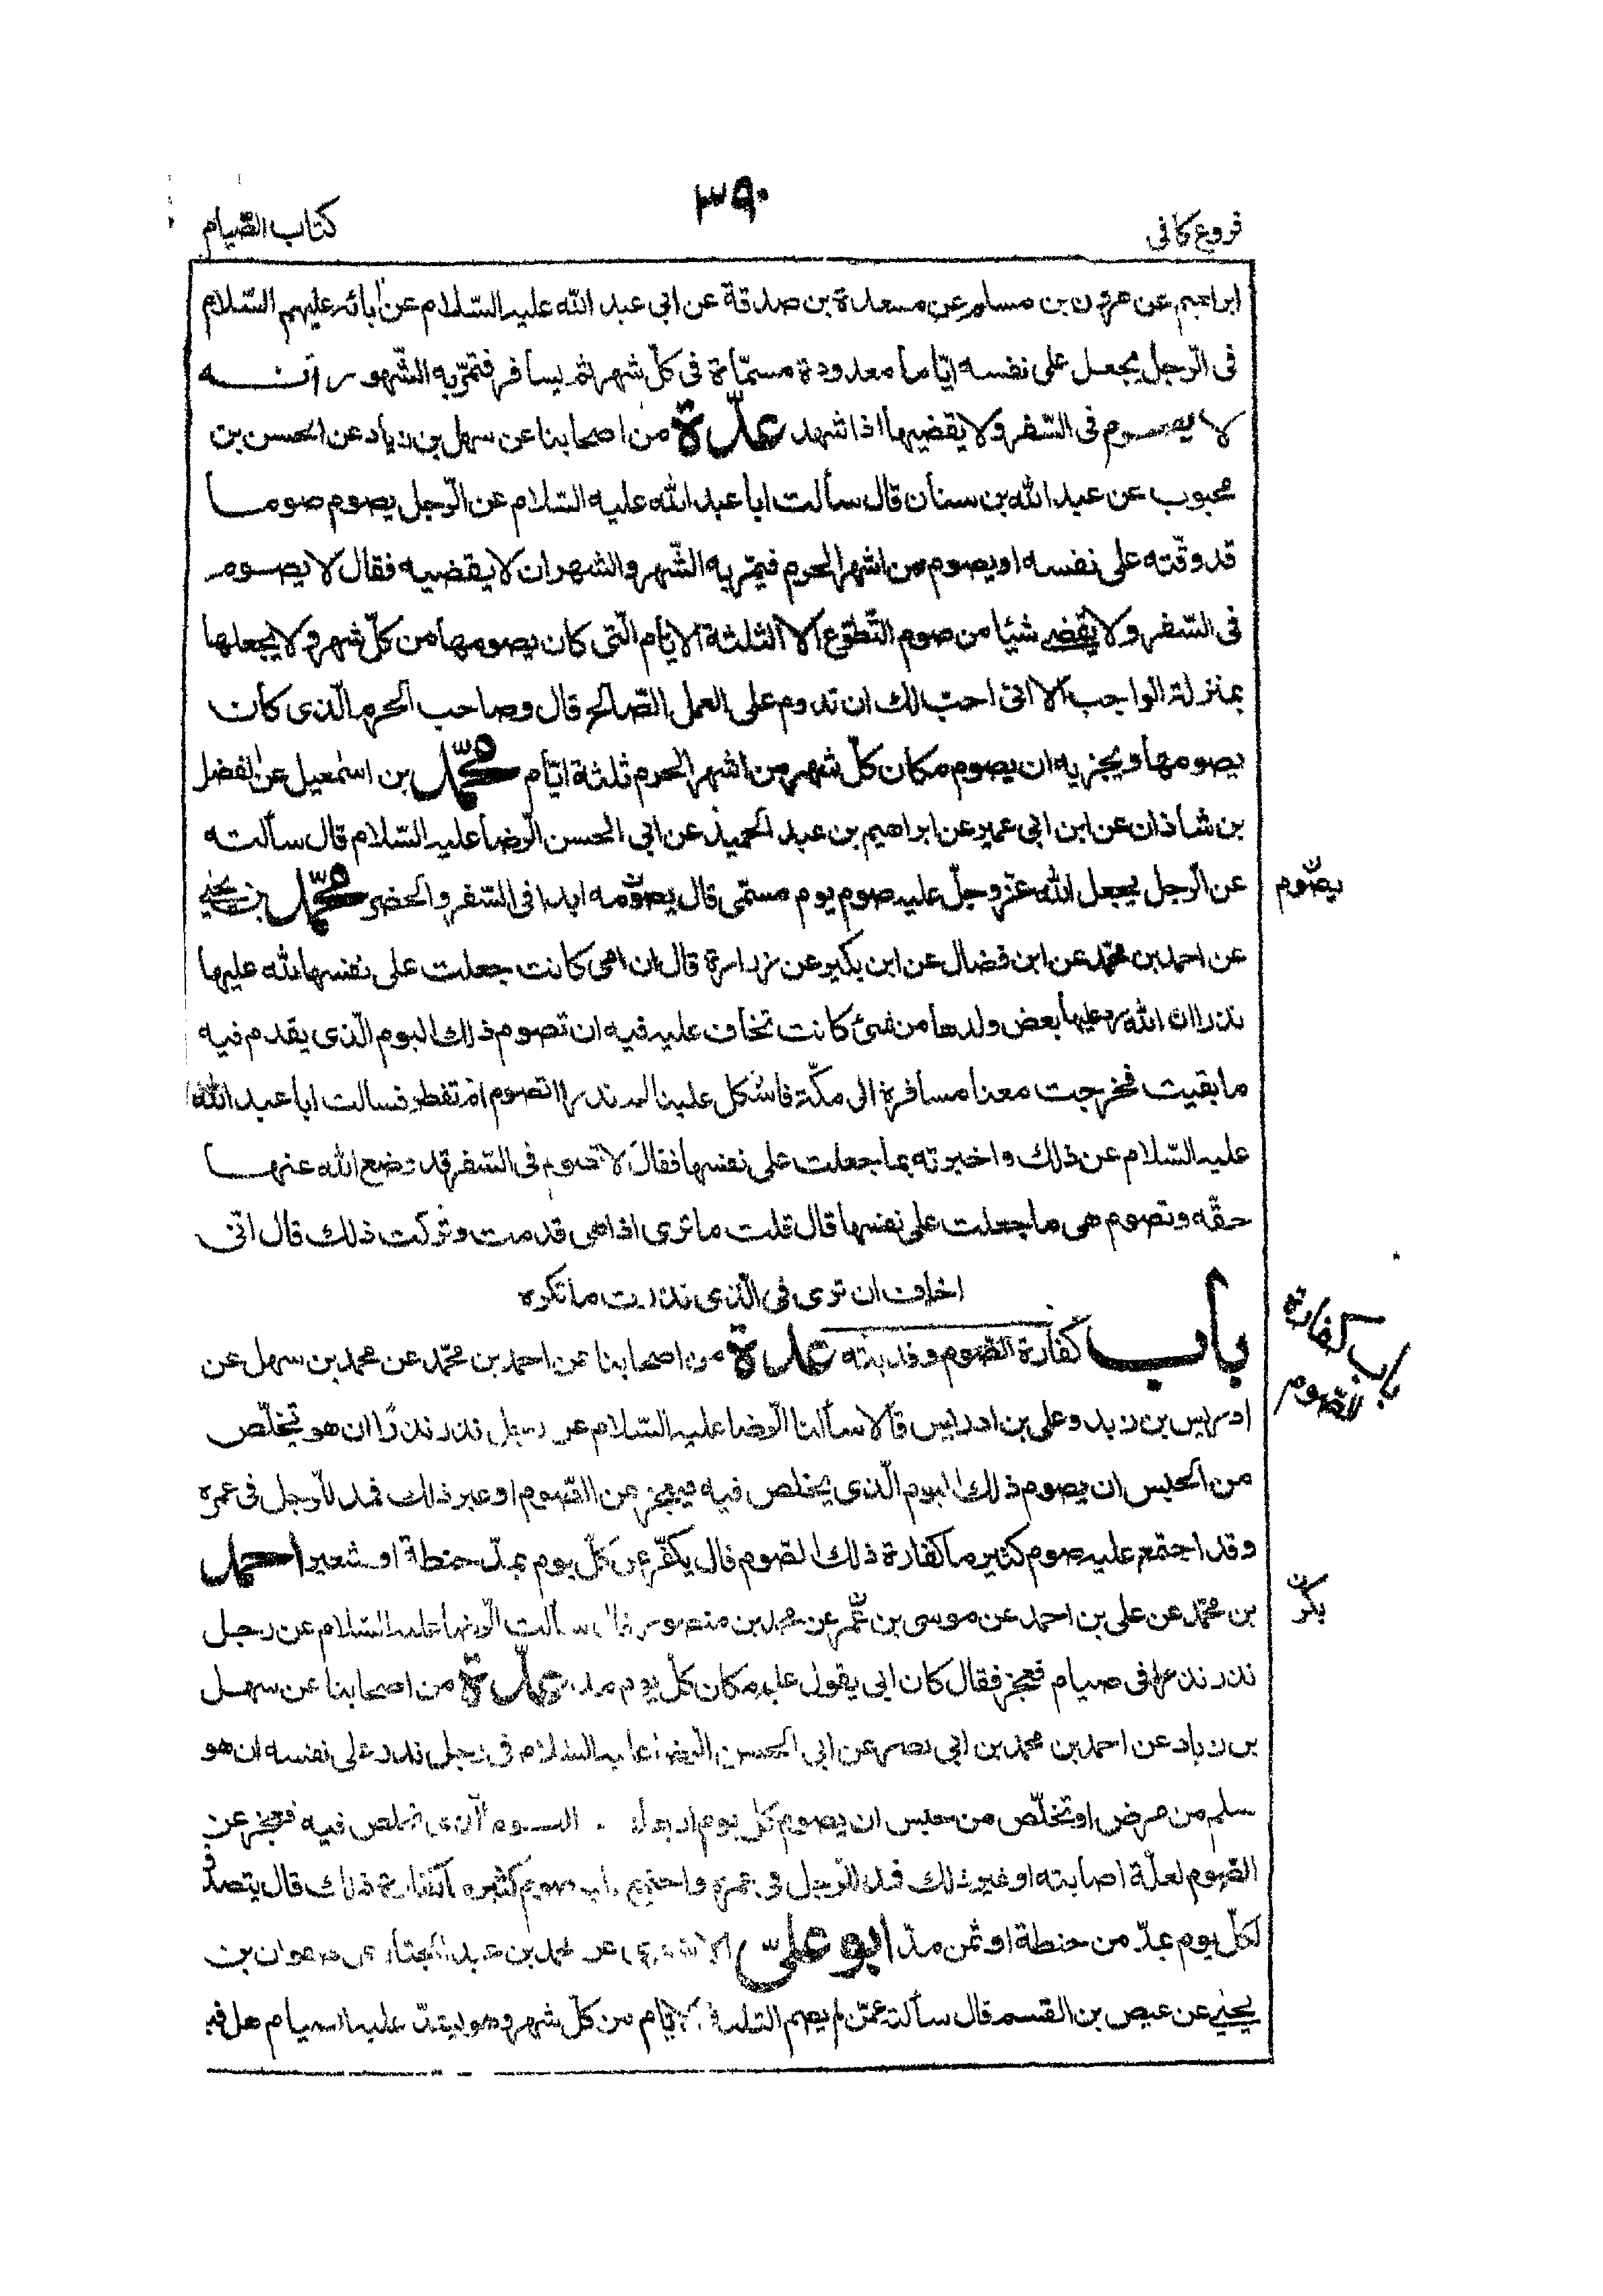 فروع كافى
٣٩٠
كتاب الصّيام
ابراهيم عن هرون بن مسلم عن مسعدة بن صدقة عن ابى عبد الله عليه السّلام عن ابائه عليهم السّلام
فى الرّجل يجعل على نفسه ايّاما معدودة مسمّاة فى كلّ شهر ثم يسافر فتمرّ به الشّهور انه
لا يصوم فى السّفر ولا يقضيها اذا شهد عدّة من اصحابنا عن سهل بن زياد عن الحسن بن
محبوب عن عبد الله بن سنان قال سألت ابا عبد الله عليه السّلام عن الرّجل يصوم صوما
قد وقّته على نفسه او يصوم من اشهر الحرم فيمرّ به الشّهر والشهران لا يقضيه فقال لا يصوم
فى السّفر ولا يقضى شيئا من صوم التّطوّع الا الثلثة الايّام الّتى كان يصومها من كلّ شهر ولا يجعلها
بمنزلة الواجب الا انى احبّ لك ان تدوم على العمل الصّالح قال وصاحب الحرم الّذى كان
يصومها ويجزيه ان يصوم مكان كلّ شهر من اشهر الحرم ثلثة ايّام محمّد بن اسمعيل عن الفضل
بن شاذان عن ابن ابى عمير عن ابراهيم بن عبد الحميد عن ابى الحسن الرّضا عليه السّلام قال سألته
عن الرّجل يجعل الله عزّ وجلّ عليه صوم يوم مسمّى قال يصومه ابدا فى السّفر والحضر محمّد بن يحيى
يصوم
عن احمد بن محمّد عن ابن فضال عن ابن بكير عن زرارة قال ان امى كانت جعلت على نفسها لله عليها
نذرا ان الله رد عليها بعض ولدها من شئ كانت تخاف عليه فيه ان تصوم ذلك اليوم الّذى يقدم فيه
ما بقيت فخرجت معنا مسافرة الى مكّة فاشكل علينا لمه نذرا اتصوم ام تفطر فسالت ابا عبد الله
عليه السّلام عن ذلك واخبرته بما جعلت على نفسها فقال لا تصوم فى السّفر قد وضع الله عنها
حقّه وتصوم هى ما جعلت على نفسها قال قلت ما ترى اذا هى قدمت وتركت ذلك قال انّى
اخاف ان ترى فى الّذى نذرت ما تكره
باب كفارة الصّوم وفديته عدّة من اصحابنا عن احمد بن محمّد عن محمد بن سهل عن
باب كفارة الصّوم
ادريس بن زيد وعلى بن ادريس قالا سألنا الرّضا عليه السّلام عن رجل نذر نذرًا ان هو تخلّص
من الحبس ان يصوم ذلك اليوم الّذى يخلص فيه فيعجز عن الصّوم او غير ذلك فمد للرّجل فى عمره
وقد اجتمع عليه صوم كثير ما كفارة ذلك الصّوم قال يكفّر عن كلّ يوم بمدّ حنطة او شعير احمد
بن محمّد عن على بن احمد عن موسى بن عمر عن محمد بن منصور قال سألت الرّضا عليه السّلام عن رجل
بكر
نذر نذرا فى صيام فعجز فقال كان ابى يقول عليه مكان كلّ يوم مد عدّة من اصحابنا عن سهل
بن زياد عن احمد بن محمد بن ابى نصر عن ابى الحسن الرّضا عليه السّلام فى رجل نذر على نفسه ان هو
سلم من مرض او تخلّص من حبس ان يصوم كل يوم اربعاء اليوم الّذى تخلص فيه فعجز عن
الصّوم لعلّة اصابته او غير ذلك فمد للرّجل فى عمره واجتمع عليه صوم كثير ما كفارة ذلك قال يتصدّق
لكلّ يوم بمدّ من حنطة او ثمن مدّ ابو علىّ الاشعرى عن محمد بن عبد الجبّار عن صفوان بن
يحيى عن عيص بن القسم قال سألته عمّن لم يصم الثلثة الايّام من كلّ شهر وهو يشتدّ عليه الصيام هل فيه